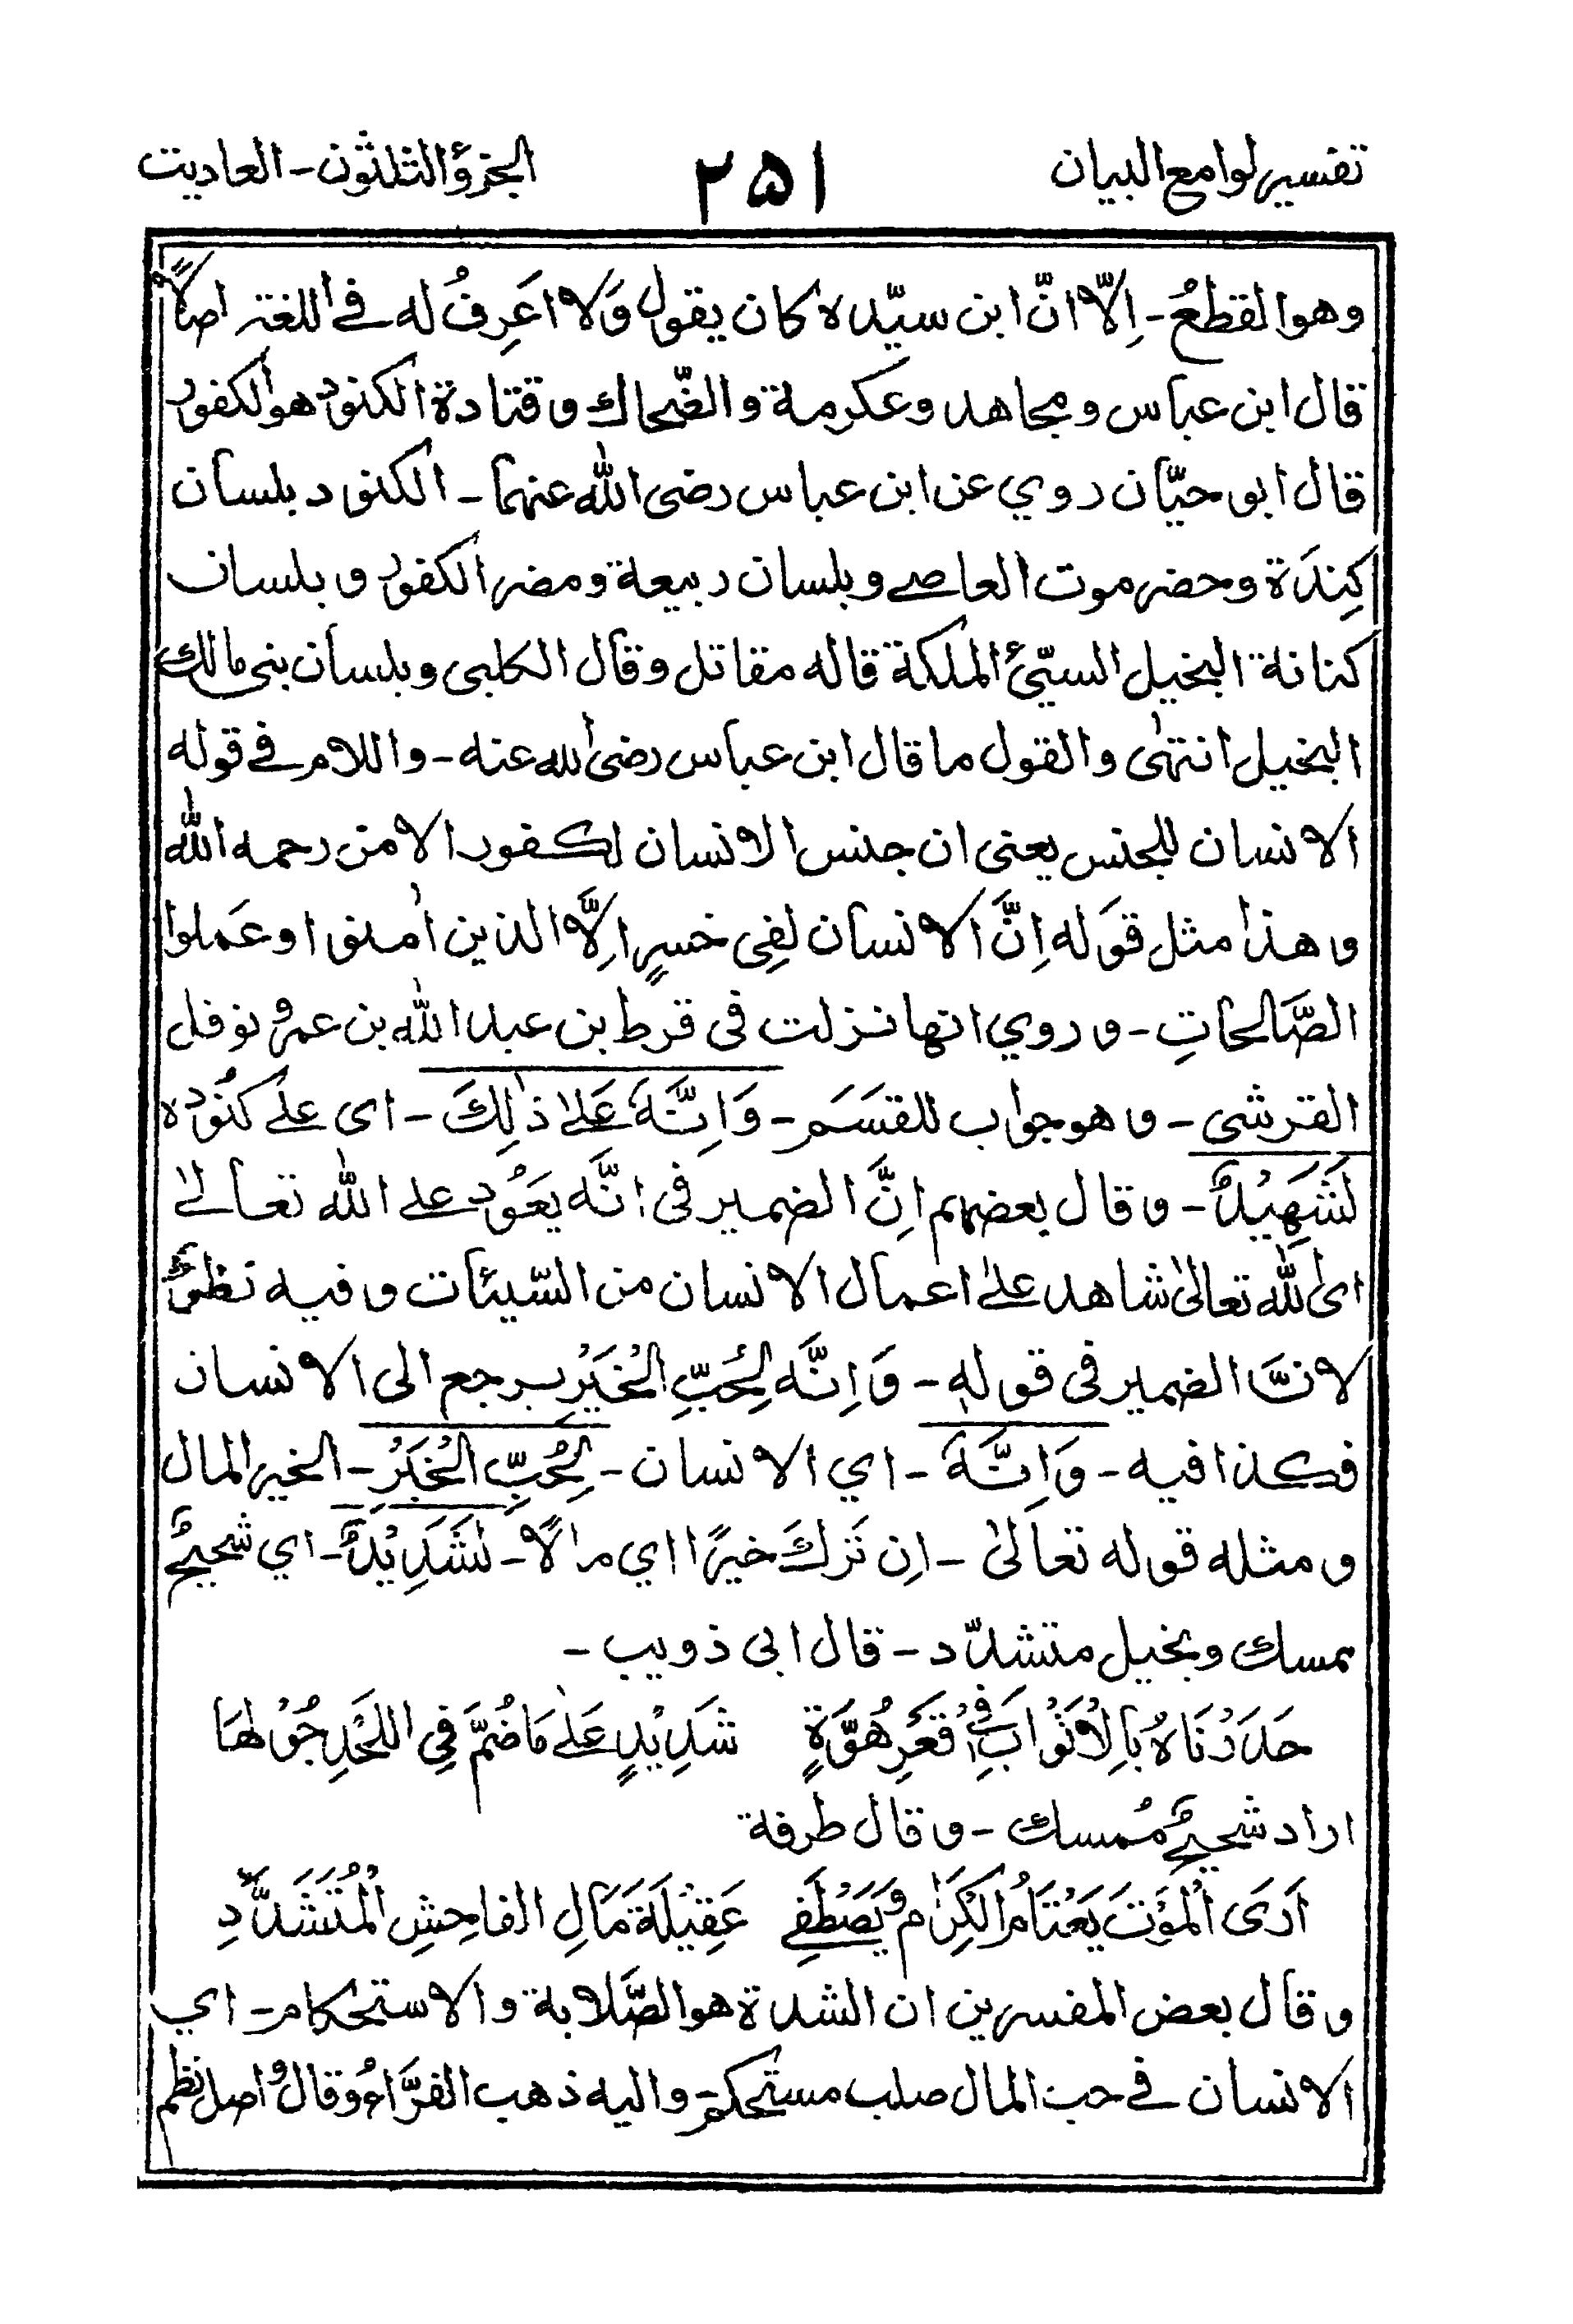 تفسیر لوامع البیان
۲۵۱
الجزؤ الثلثون - العادیت
وهو القطعُ - اِلّا انّ ابن سیّده کان یقول وَلا اعَرِفُ له فے اللغتہ اصلاً
قال ابن عباس ومجاهد وعکرمة والضّحاك وقتادة الکنود هو الکفود
قال ابو حیّان روي عن ابن عباس رضی اللّٰه عنهما - الکنود بلسان
کِندَة وحضرموت العاصے وبلسان ربیعة ومضر الکفور وبلسان
کنانة البخیل السیّئ الملکة قاله مقاتل وقال الکلبی وبلسان بنی مالك
البخیل انتهٰی والقول ما قال ابن عباس رضی اللّٰه عنه - واللام فے قوله
الانسان للجنس یعنی ان جنس الانسان لکفور الا من رحمه اللّٰه
وهذا مثل قوَله اِنَّ الانسان لفِی خسرٍ اِلَّا الذین اٰمنوا وعَملوا
الصَّالحَاتِ - وروي انها نزلت فی قرط بن عبد اللّٰه بن عمرو نوفل
القرشی - وهو جواب للقسَم - وَاِنَّهٗ عَلٰے ذٰلِكَ - ای علےٰ کنُوده
لَشَهِیْدٌ - وقال بعضهم اِنَّ الضمیر فی انَّه یعَوُد علے اللّٰه تعالےٰ
ای اللّٰه تعالیٰ شاهد علےٰ اعمال الانسان من السّیئات وفیه نظرٌ
لانَّ الضمیر فی قولهٖ - وَاِنَّه لِحُبِّ الْخَیْرِ یرجع الی الانسان
فکذا فیه - وَاِنَّهٗ - اي الانسان - لِحُبِّ الْخَیْرِ - الخیر المال
ومثله قوله تعالیٰ - اِن تَرَكَ خیرًا اي مالًا - لَشَدِیْدٌ - اي شحیحٌ
ممسك وبخیل متشدّد - قال ابی ذویب -
حَدَدْنَاهُ بَالِاْثَوْابَ فِیْ قَعَرِ هُوَّةٍ    شَدِیْدٍ عَلےٰ مَا ضُمَّ فِی اللَّحْدِ جُوْلهَا
اراد شحیحٌ مُمسك - وقال طرفة
اَرَی الْمَوْتَ یَعْتَامُ الکِرَامَ وَیَصْطَفِے    عَقِیْلَةَ مَالِ الفاحِشِ الْمُتَشَدِّدِ
وقال بعض المفسرین ان الشدة هو الصَّلابة والاستحکام - اي
الانسان فے حب المال صلب مستحکم - والیه ذهب الفرَّاءُ وقال واصل نظم